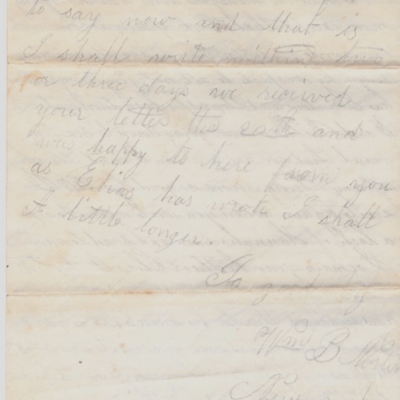 to say now and that is
I shall write within two
or three days we recieved
your letter the and
was happy to here from you
as has wrote I shall
A little longer.
Wm B